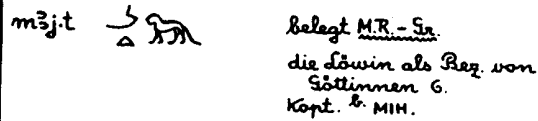 mꜣj.t belegt M.R. - Gr.
die Löwin als Bez. von
Göttinnen G.
Kopt. b. ⲘⲒⲎ.